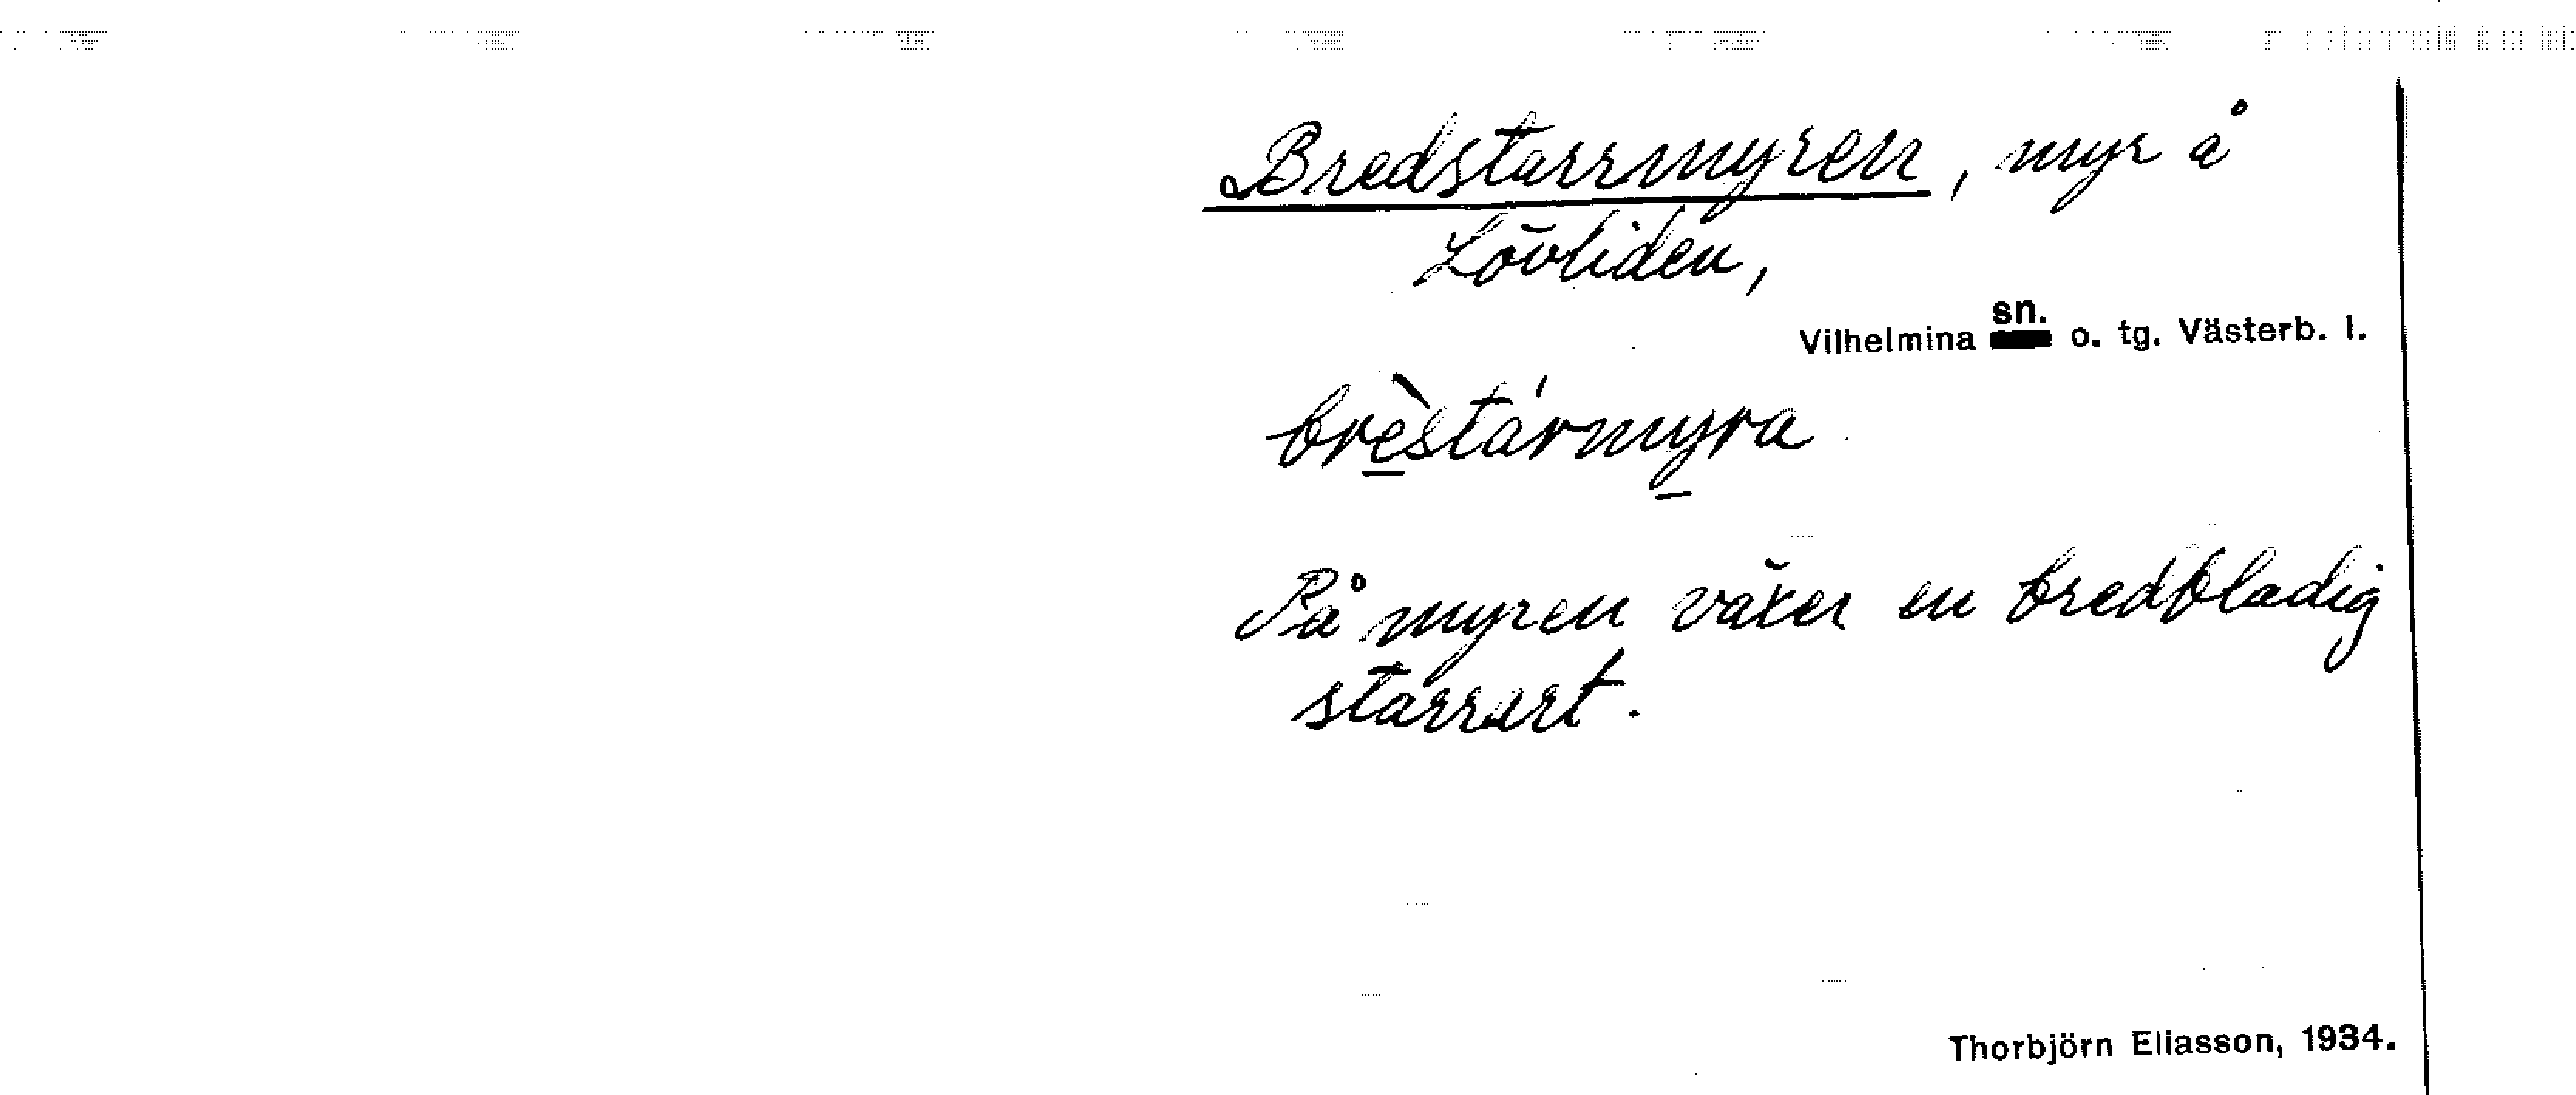 Bredstarrmyren, myr å
Lövliden,
Vilhelmina sn. o. tg. Västerb. l.
brèstármyra
På myren växer en bredbladig
starrart.
Thorbjörn Eliasson, 1934.